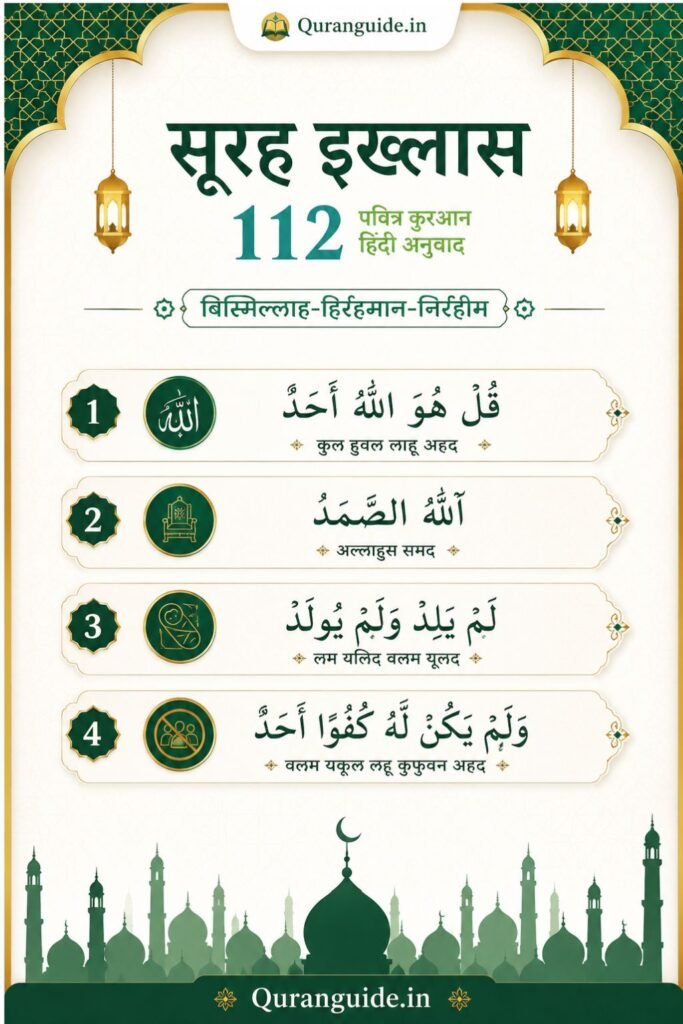 Quranguide.in
सूरह इख्लास
112
पवित्र कुरआन
हिंदी अनुवाद
बिस्मिल्लाह-हिर्रहमान-निर्रहीम
1
الله
قُلْ هُوَ اللّٰهُ أَحَدٌ
कुल हुवल लाहू अहद
2
آللّٰهُ الصَّمَدُ
अल्लाहुस समद
3
لَمْ يَلِدْ وَلَمْ يُولَدْ
लम यलिद वलम यूलद
4
وَلَمْ يَكُنْ لَّهُ كُفُوًا أَحَدٌ
वलम यकूल लहू कुफुवन अहद
Quranguide.in